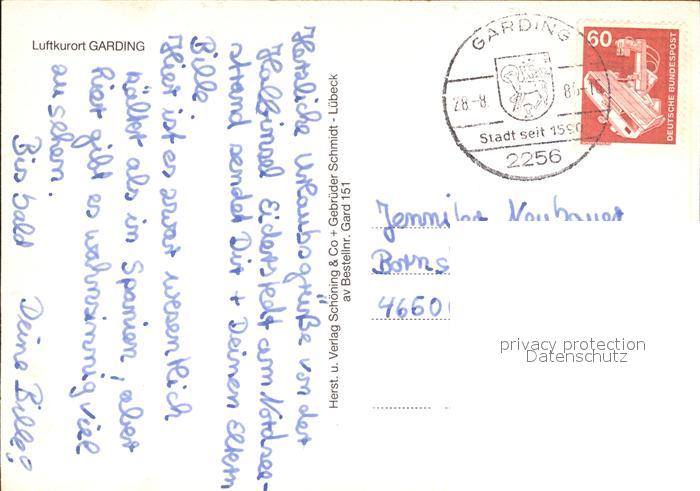 Luftkurort GARDING
Herzliche Urlaubsgrüße von der
Halbinsel Eiderstedt am Nordsee-
strand sendet Dir + Deinen Eltern
Bille
Hier ist es zwar wesentlich
kälter als in Spanien, aber
hier gibt es wahnsinnig viel
an sehen.
Bis bald Deine Bille!
Herst. u. Verlag Schöning & Co + Gebrüder Schmidt - Lübeck
av Bestellnr. Gard 151
GARDING
28.-8. 86-10
Stadt seit 1590
2256
60
DEUTSCHE BUNDESPOST
Jennifer Neubauer
Borns
4660
privacy protection
Datenschutz